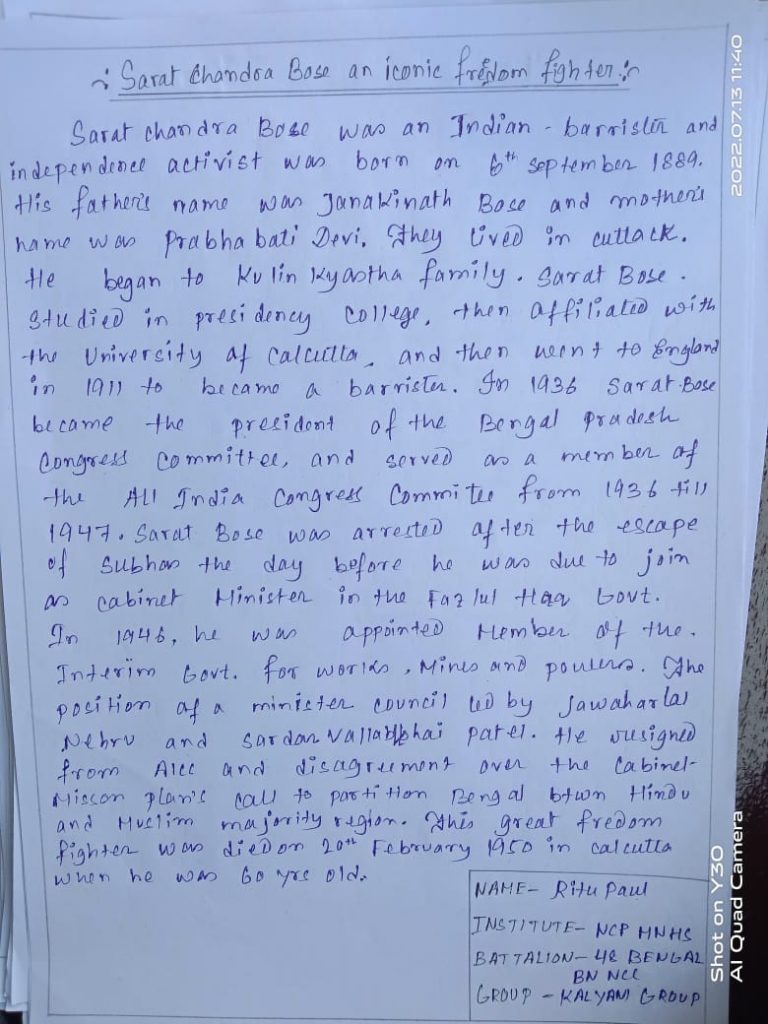 ∻ Sarat Chandra Bose an iconic fredom fighter ∻
Sarat chandra Bose was an Indian - barrister and
independence activist was born on 6th september 1889.
His father's name was Janakinath Bose and mother's
name was Prabhabati Devi. They lived in cuttack.
He began to Kulin Kyastha family. Sarat Bose.
studied in presidency college, then affiliated with
the University of Calcutta, and then went to England
in 1911 to became a barrister. In 1936 Sarat Bose
became the president of the Bengal Pradesh
Congress Committee, and served as a member of
the All India Congress Commitee from 1936 till
1947. Sarat Bose was arrested after the escape
of Subhas the day before he was due to join
as cabinet Minister in the Fazlul Haq Govt.
In 1946, he was appointed Member of the.
Interim Govt. for works, Mines and powers. The
position of a minister council led by Jawaharlal
Nehru and Sardar Vallabbhai Patel. He resigned
from AICC and disagreement over the Cabinet-
Misson plan's call to partition Bengal btwn Hindu
and Muslim majority region. This great fredom
fighter was died on 20th February 1950 in calcutta
when he was 60 yrs old.
NAME- Ritu Paul
INSTITUTE- NCP HNHS
BATTALION- 48 BENGAL
BN NCC
GROUP - KALYANI GROUP
2022.07.13 11:40
Shot on Y30
AI Quad Camera